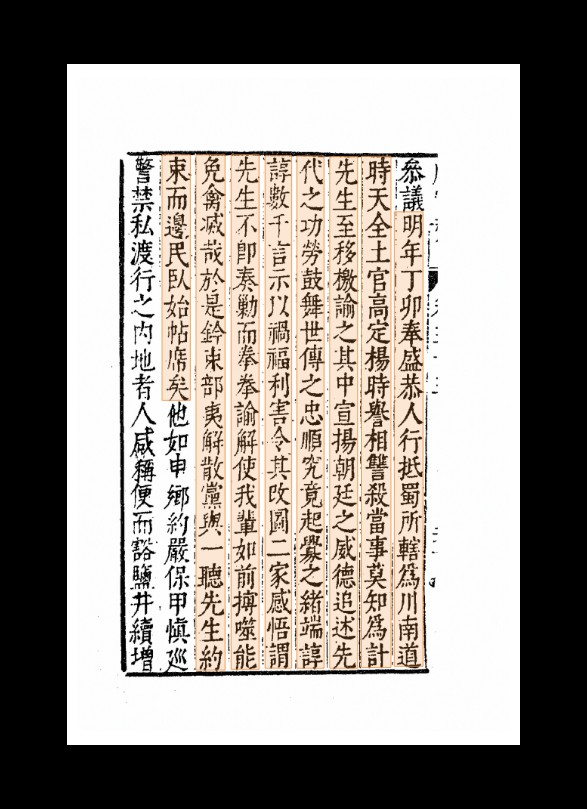 叅議明年丁卯奉盛恭人行抵蜀所轄爲川南道
時天全土官高定楊時譽相讐殺當事莫知爲計
先生至移檄諭之其中宣揚朝廷之威德追述先
代之功勞鼓舞世傳之忠順究竟起釁之緒端諄
諄數千言示以禍福利害令其改圖二家感悟謂
先生不卽奏勦而拳拳諭解使我輩如前搏噬能
免禽滅哉於是鈐束部夷解散黨與一聽先生約
束而邊民臥始帖席矣他如申鄉約嚴保甲慎廵
警禁私渡行之內地者人咸稱便而豁鹽井續增